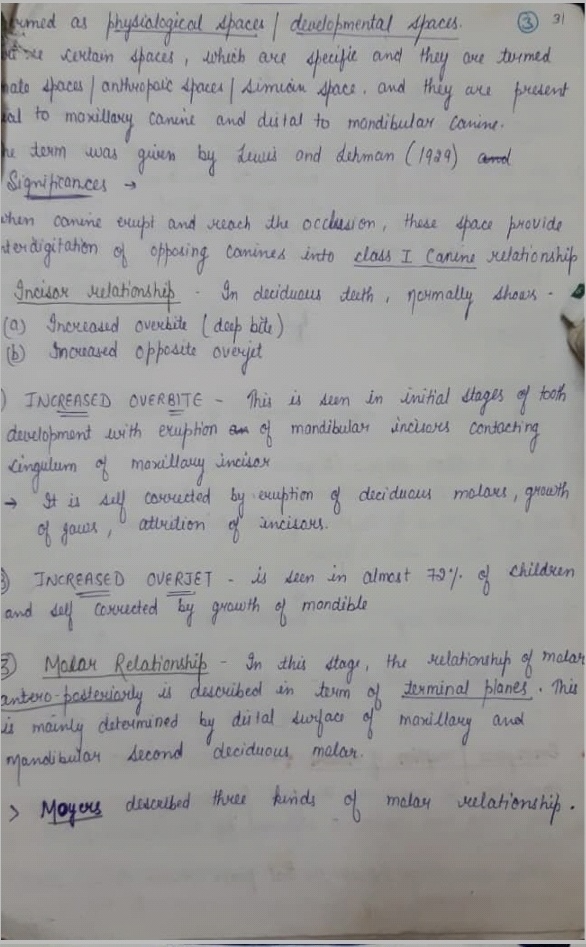 termed as physiological spaces / developmental spaces. ③ 31
certain spaces, which are specific and they are termed
spaces / anthropoic spaces / simian space. and they are present
to maxillary canine and distal to mandibular canine.
term was given by Lewis and Lehman (1929) and
Significances →
when canine erupt and reach the occlusion, these space provide
interdigitation of opposing canines into class I Canine relationship
Incisor relationship - In deciduous teeth, normally shows -
(a) Increased overbite (deep bite)
(b) Increased opposite overjet
) INCREASED OVERBITE - This is seen in initial stages of tooth
development with eruption of mandibular incisors contacting
cingulum of maxillary incisor
→ It is self corrected by eruption of deciduous molars, growth
of jaws, attrition of incisors.
) INCREASED OVERJET - is seen in almost 72% of children
and self corrected by growth of mandible
3) Molar Relationship - In this stage, the relationship of molar
antero-posteriorly is described in term of terminal planes. This
is mainly determined by distal surface of maxillary and
Mandibular second deciduous molar.
> Moyers described three kinds of molar relationship.